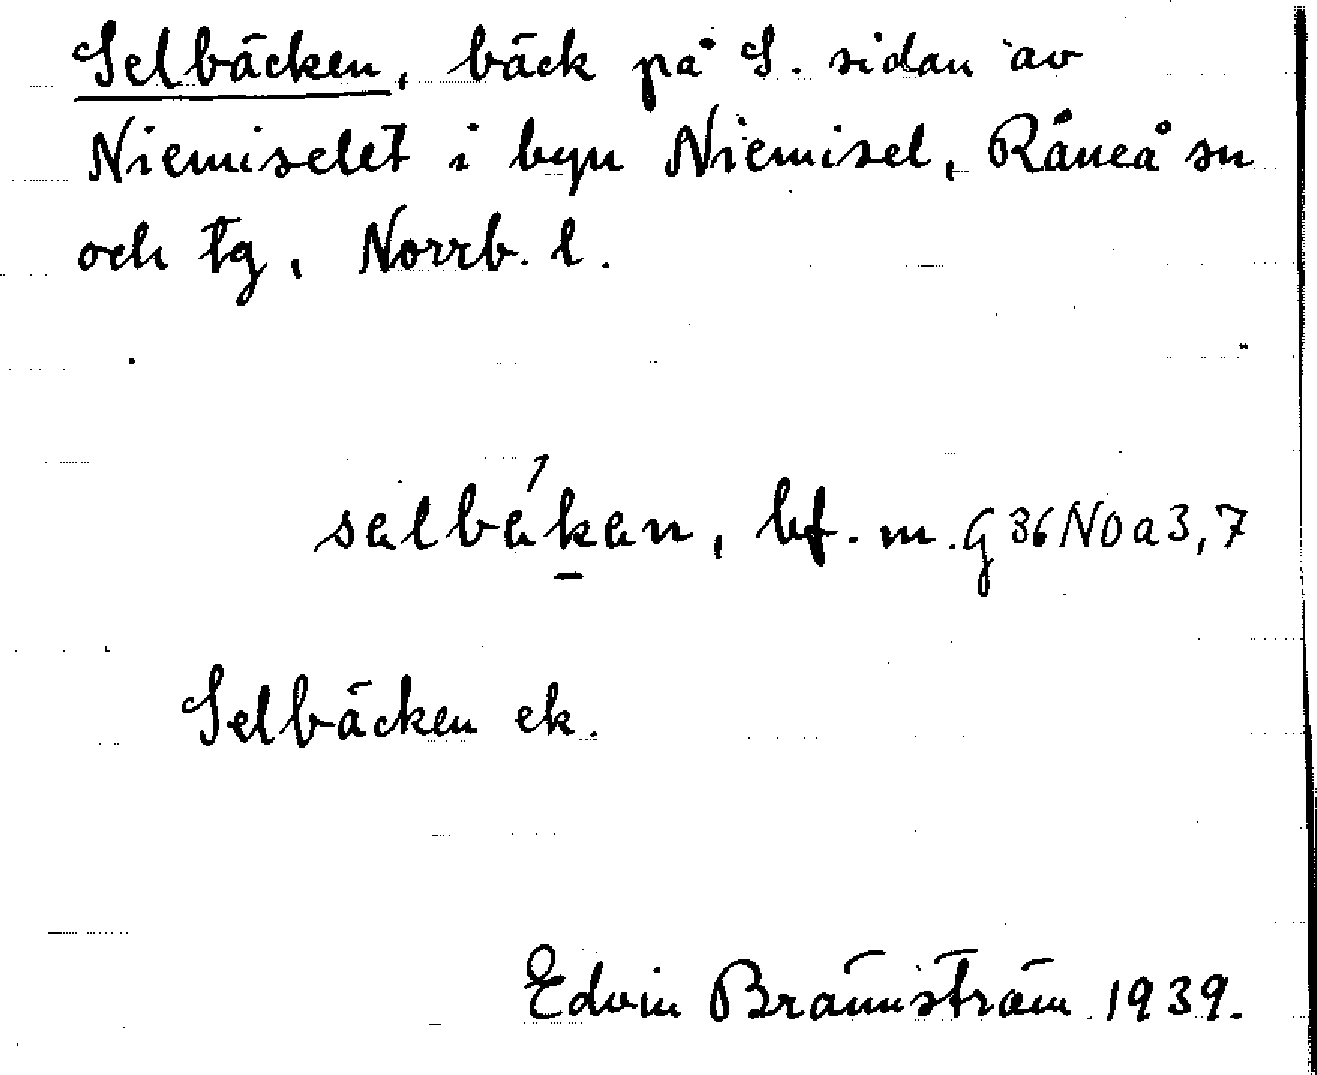 Selbäcken, bäck på S. sidan av
Niemiselet i byn Niemisel, Råneå sn
och tg, Norrb. l.
selbéken, bf. m. G36NOa3,7
Selbäcken ek.
Edvin Brännström 1939.